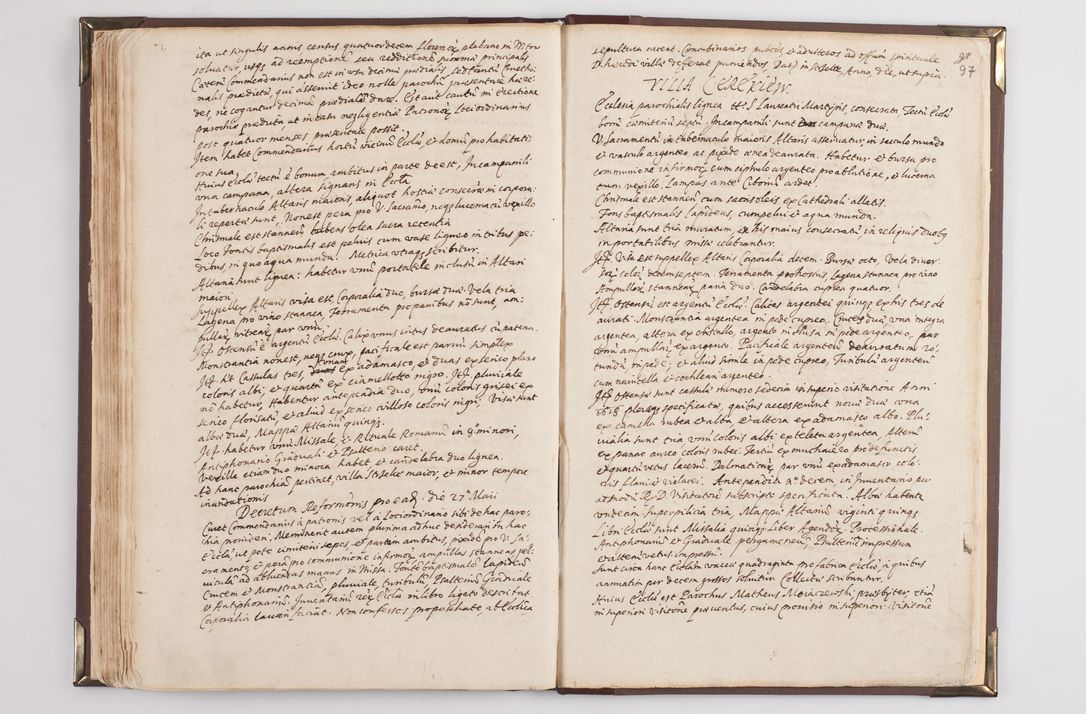 ita ut singulis annis census quatuordecem florenor, plebano in
soluatur, usq ad reemptione seu redditione summæ principalis
Catem Commendarius non est in usu decimæ prædialis sed tantu
nalis prædictæ, qui asserunt ideo nolle parochu præsentare hære-
des, ne cogantur decimã prædialē dare. Est aut cautũ in erectione
parochiæ prædictæ ut in casu negligentiæ Patronor, Loci ordinarius
post quatuor menses præsentare possit.
Item habet Commendarius hortũ vicinũ Ecclæ, et domũ pro habitati:
one sua.
Huius Ecclæ tectũ ē bonum, ambitus in parte deest, In campanili
vna campana, altera signans in Eccla
In tabernaculo Altaris maioris, aliquot hostiæ consecratæ in corpora:
li repertæ sunt, Non est pera pro V. Sacramō, neq lucerna cũ vexillo
Chrismale est stanneũ habens olea sacra recentia
Loco Fontis baptismalis est peluis cum vase ligneo in tribus pe:
dibus in quo aqua munda. Metrica utraq scribitur.
Altaria sunt lignea: habetur vnũ portatile inclusũ in Altari
maiori.
Suppellex Altaris visa est, Corporalia duo, bursæ duæ. Vela tria
Lagena pro vino stannea, Ferramenta pro panibus nō sunt, am:
pullar, vitrear, par vnũ.
Itē Ostensũ ē argentũ Ecclæ. Calix vnus intus deauratus cũ patena.
Monstrantia non est, neq crux, pacificale est parvũ simplex
Itē sūt Casulæ tres, vna ex adamasco, et duæ ex serico plano
coloris albi, et quarta ex ciamellotto nigro. Itē pluviale
nō habetur, Habentur antependia duo, vnũ coloris grisei ex
serico florisato, et aliud ex serico villoso coloris nigri, Visæ sunt
albæ duæ, Mappæ Altariũ quinq.
Itē habetur vnũ Missale, et Rituale Romanũ in 8° minori,
Antiphonario Graduali et Psalterio caret.
Vexilla etiam duo minora habet, et candelabra duo lignea.
Ad hanc parochiã pertinet, villa Stzelce maior, et minor tempore
inundationis
Decretum Reformōnis pro ead. die 27ª Maii
Curet Commendarius a patronis vel à Loci ordinario sibi de hac paro:
chia prouideri. Meminerit autem plurima adhuc desiderari in hac
Eccla ut pote cimiterii sepes, et partem ambitus, pixidē pro V. Sa:
cramento, et perã pro communione infirmor, ampullas stanneas pel:
viculã ad abluendas manus in Missa. Fontē baptismalē lapideũ
Crucem et Monstrantiã, pluviale, turibulũ, Psalteriũ Graduale
et Antiphonariũ. Inventariũ rer Ecclæ in libro ligato describat.
Corporalia lauari faciat. Non confessos pro paschate ab Ecclica
sepultura arceat. Concubinarios publicos et adulteros ad offm spirituale
D. hæredi villæ deferat puniendos. Dat in Stzelce, Anno die, ut supra.
97
97
VILLA CERERIEW.
Ecclesia parochialis lignea tt. S. Laurentii Martyris consecrata, Tectũ Ecclæ
bonũ cœmiterii septũ. In campanili sunt campanæ duæ
V. Sacramentũ in tabernaculo maioris Altaris asservatur, in sacculo mundo
et vasculo argenteo ac pixide ænea deaurata. Habetur et bursa pro
communione infirmor, cum ciphulo argenteo pro ablutione, et lucerna
cum vexillo. Lampas ante Ciboriũ ardet.
Chrismale est stanneũ cum sacris oleis ex Cathedrali allatis.
Fons baptismalis lapideus, cum pelui et aqua munda.
Altaria sunt tria muratum, ex his maius consecratũ in reliquis duobq
in portatilibus missæ celebrantur.
Itē Visa est suppellex Altaris Corporalia decem. Bursæ octo, Vela diuer:
sor, color decem septem. Ferramenta pro hostiis, Lagena stannea pro vino
Ampullar stannear paria duo. Candelabra cuprea quatuor.
Itē Ostensũ est argentũ Ecclæ. Calices argentei quinq ex his tres de
aurati. Monstrantia argentea in pede cupreo, Cruces duæ vna integra
argentea, altera ex christallo, argento inclusa in pede argenteo, par
vnũ ampullar, ex argento. Pacificale argenteũ deauratum ro:
tundũ, in pede, et aliud simile in pede cupreo, Turibulũ argenteũ
cum navicella et cochleari argenteo.
Itē Ostensæ sunt casulæ numero sedecim in superio visitatione Anni
1618 pleriq specificatæ, quibus accesserunt nouæ duæ vna
ex camcha rubea et alba et altera ex adamasco albo. Plu:
uialia sunt tria vnũ coloris albi ex teleta argentea, Alterũ
ex panno aureo coloris rubei. Tertiũ ex muchaiero pro defunctis
et quartũ vetus lacerũ. Dalmaticar, par vnũ ex adamasco colo:
ris flavi et violacei. Antependia n° decem, in Inventario pu:
ad scribi R. D. Visitatoris subscripto specificata. Albæ habentr
vndecim superpelicia tria, Mappæ Altariũ viginti quinq
Libri Ecclæ sunt Missalia quinq Liber Agendor, Processionale.
Antiphonariũ et Graduale pergameneũ, Psalteriũ impressum
et alterũ vetus impressũ.
Sunt circa hanc Ecclam vaccæ quadraginta pro fabrica Ecclæ, à quibus
annuatim per decem grossos soluitur. Collecta scribuntur.
Huius Ecclæ est Parochus Matheus Moiczewski, presbyter, etiã
in superiori Visitone præuentus, cuius prouisio in superiori Visitone